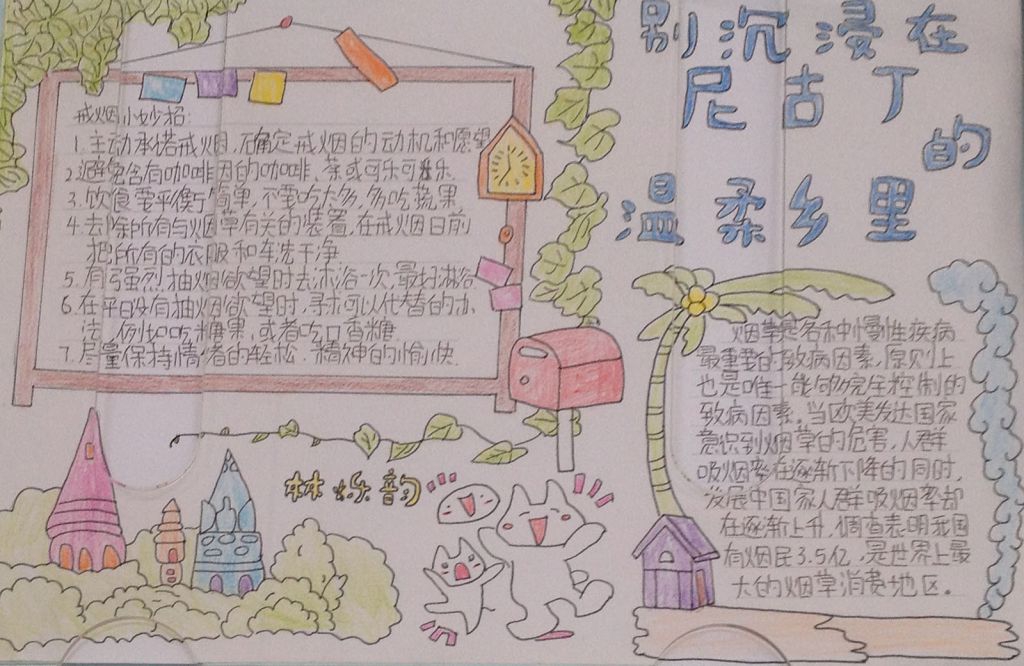 别沉浸在
尼古丁
的
温柔乡里
戒烟小妙招:
1.主动承诺戒烟,确定戒烟的动机和愿望
2.避免含有咖啡因的咖啡、茶或可乐可乐.
3.饮食要平衡简单,不要吃太多,多吃蔬果
4.去除所有与烟草有关的装置,在戒烟日前
把所有的衣服和车洗干净
5.有强烈抽烟欲望时去沐浴一次,最好淋浴
6.在平时没有抽烟欲望时,寻求可以代替的办
法,例如吃糖果,或者吃口香糖
7.尽量保持情绪的轻松、精神的愉快.
林烁韵
烟草是各种中慢性疾病
最重要的致病因素,原则上
也是唯一能够完全控制的
致病因素.当欧美发达国家
意识到烟草的危害,人群
吸烟率在逐渐下降的同时,
发展中国家人群吸烟率却
在逐渐上升,调查表明我国
有烟民3.5亿,是世界上最
大的烟草消费地区。